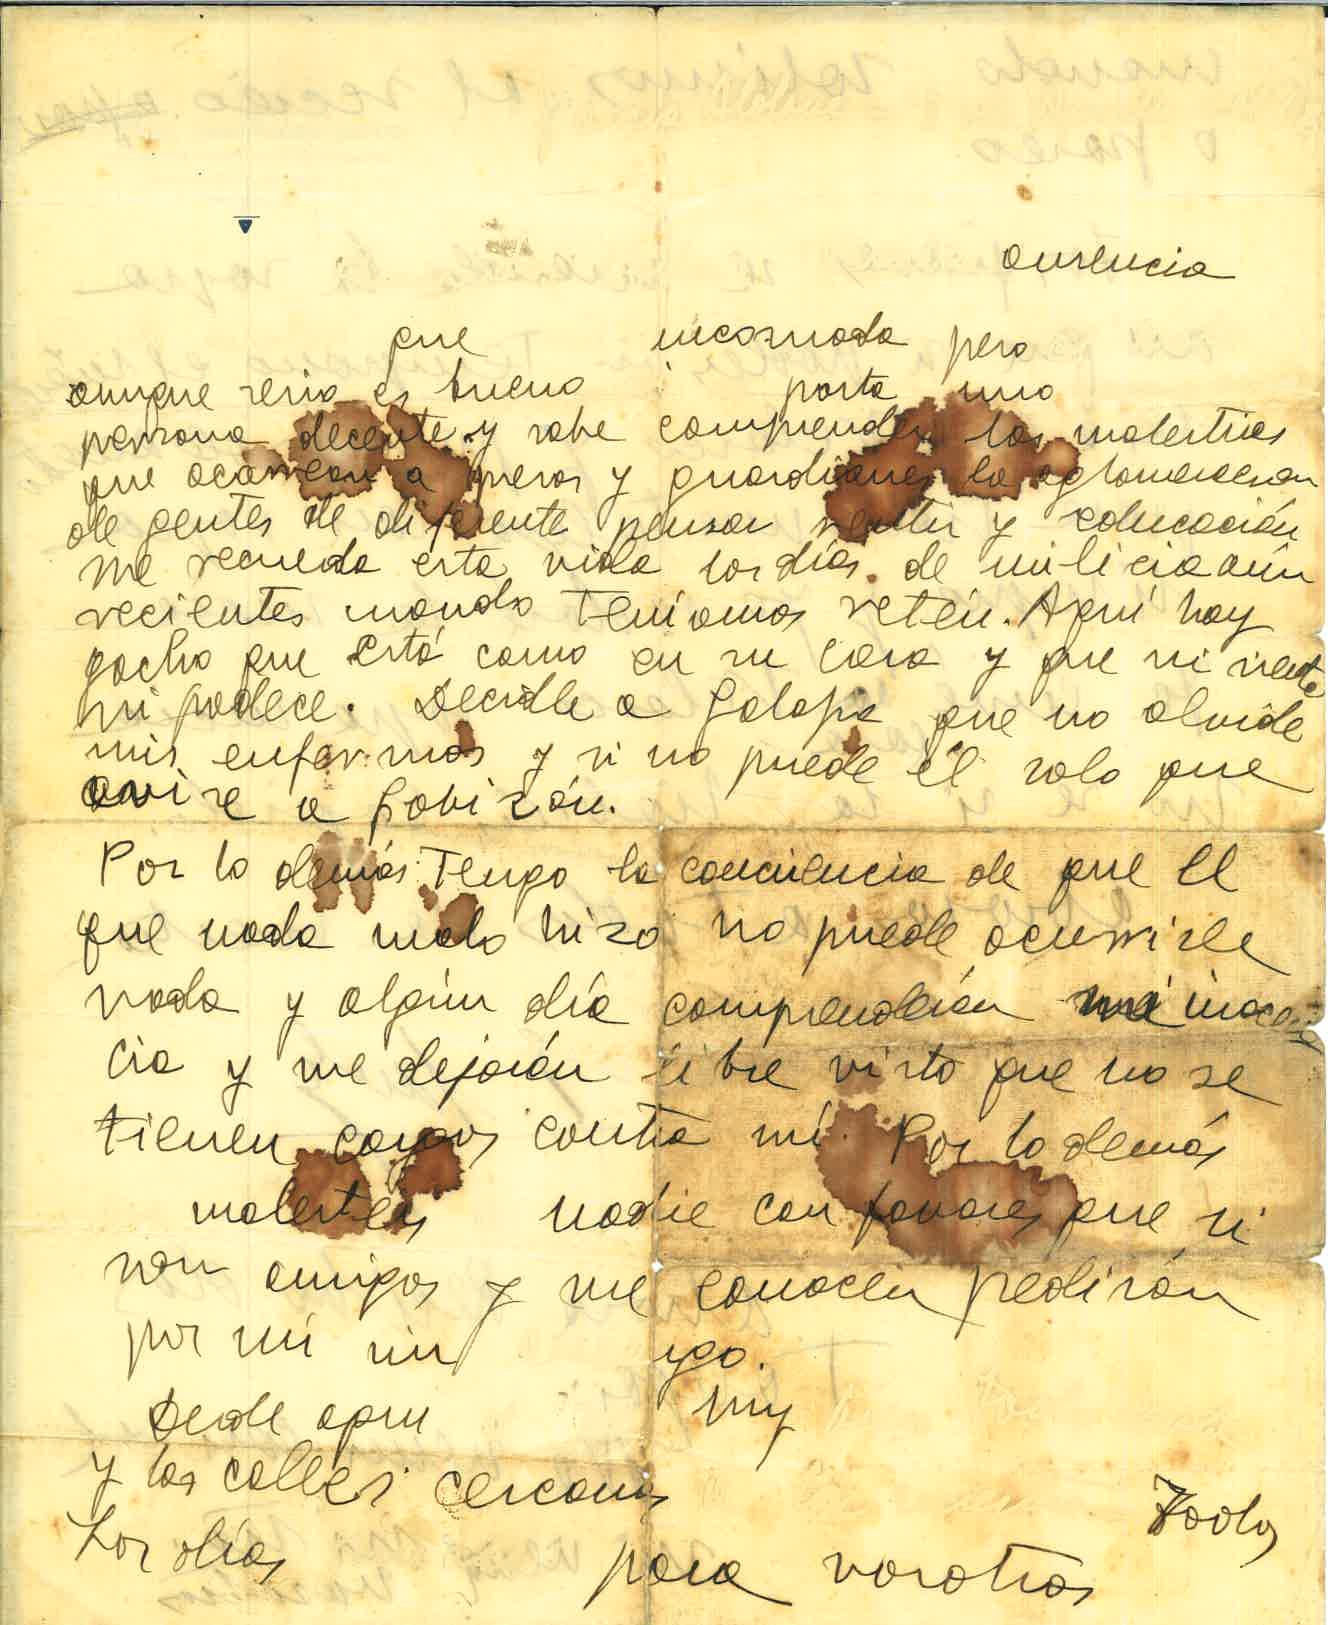 ausencia
que incomoda pero
aunque seria es bueno porta una
persona decente y sabe comprender las molestias
que acarrean a presos y guardianes la aglomeracion
de gentes de diferente pensar sentir y educación
Me recuerda esta vida los días de milicia aún
recientes cuando teníamos retén. Aquí hay
gacho que está como en su casa y que ni siente
ni padece. Decidle a que no olvide
mis enfermos y si no puede él solo que
avise a
Por lo demás tengo la conciencia de que el
que nada malo hizo no puede ocurrirle
nada y algún día comprenderán mi inocen
cia y me dejarán libre visto que no se
tienen cargos contra mí. Por lo demás
molesteis nadie con favores que si
son amigos y me conocen pedirán
por mí sin igo.
Desde aqui muy
y las calles cercanas
Todos
Los días para vosotros